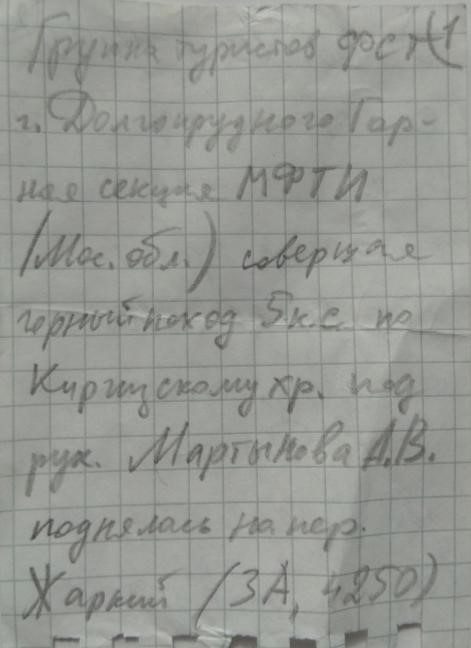 Группа туристов ФСТ
г. Долгопрудного Гор-
ная секция МФТИ
(Мос. обл.) совершая
горный поход 5 к.с. по
Киргизскому хр. под
рук. Мартынова А.В.
поднялась на пер.
Жаркий (3А, 4250)